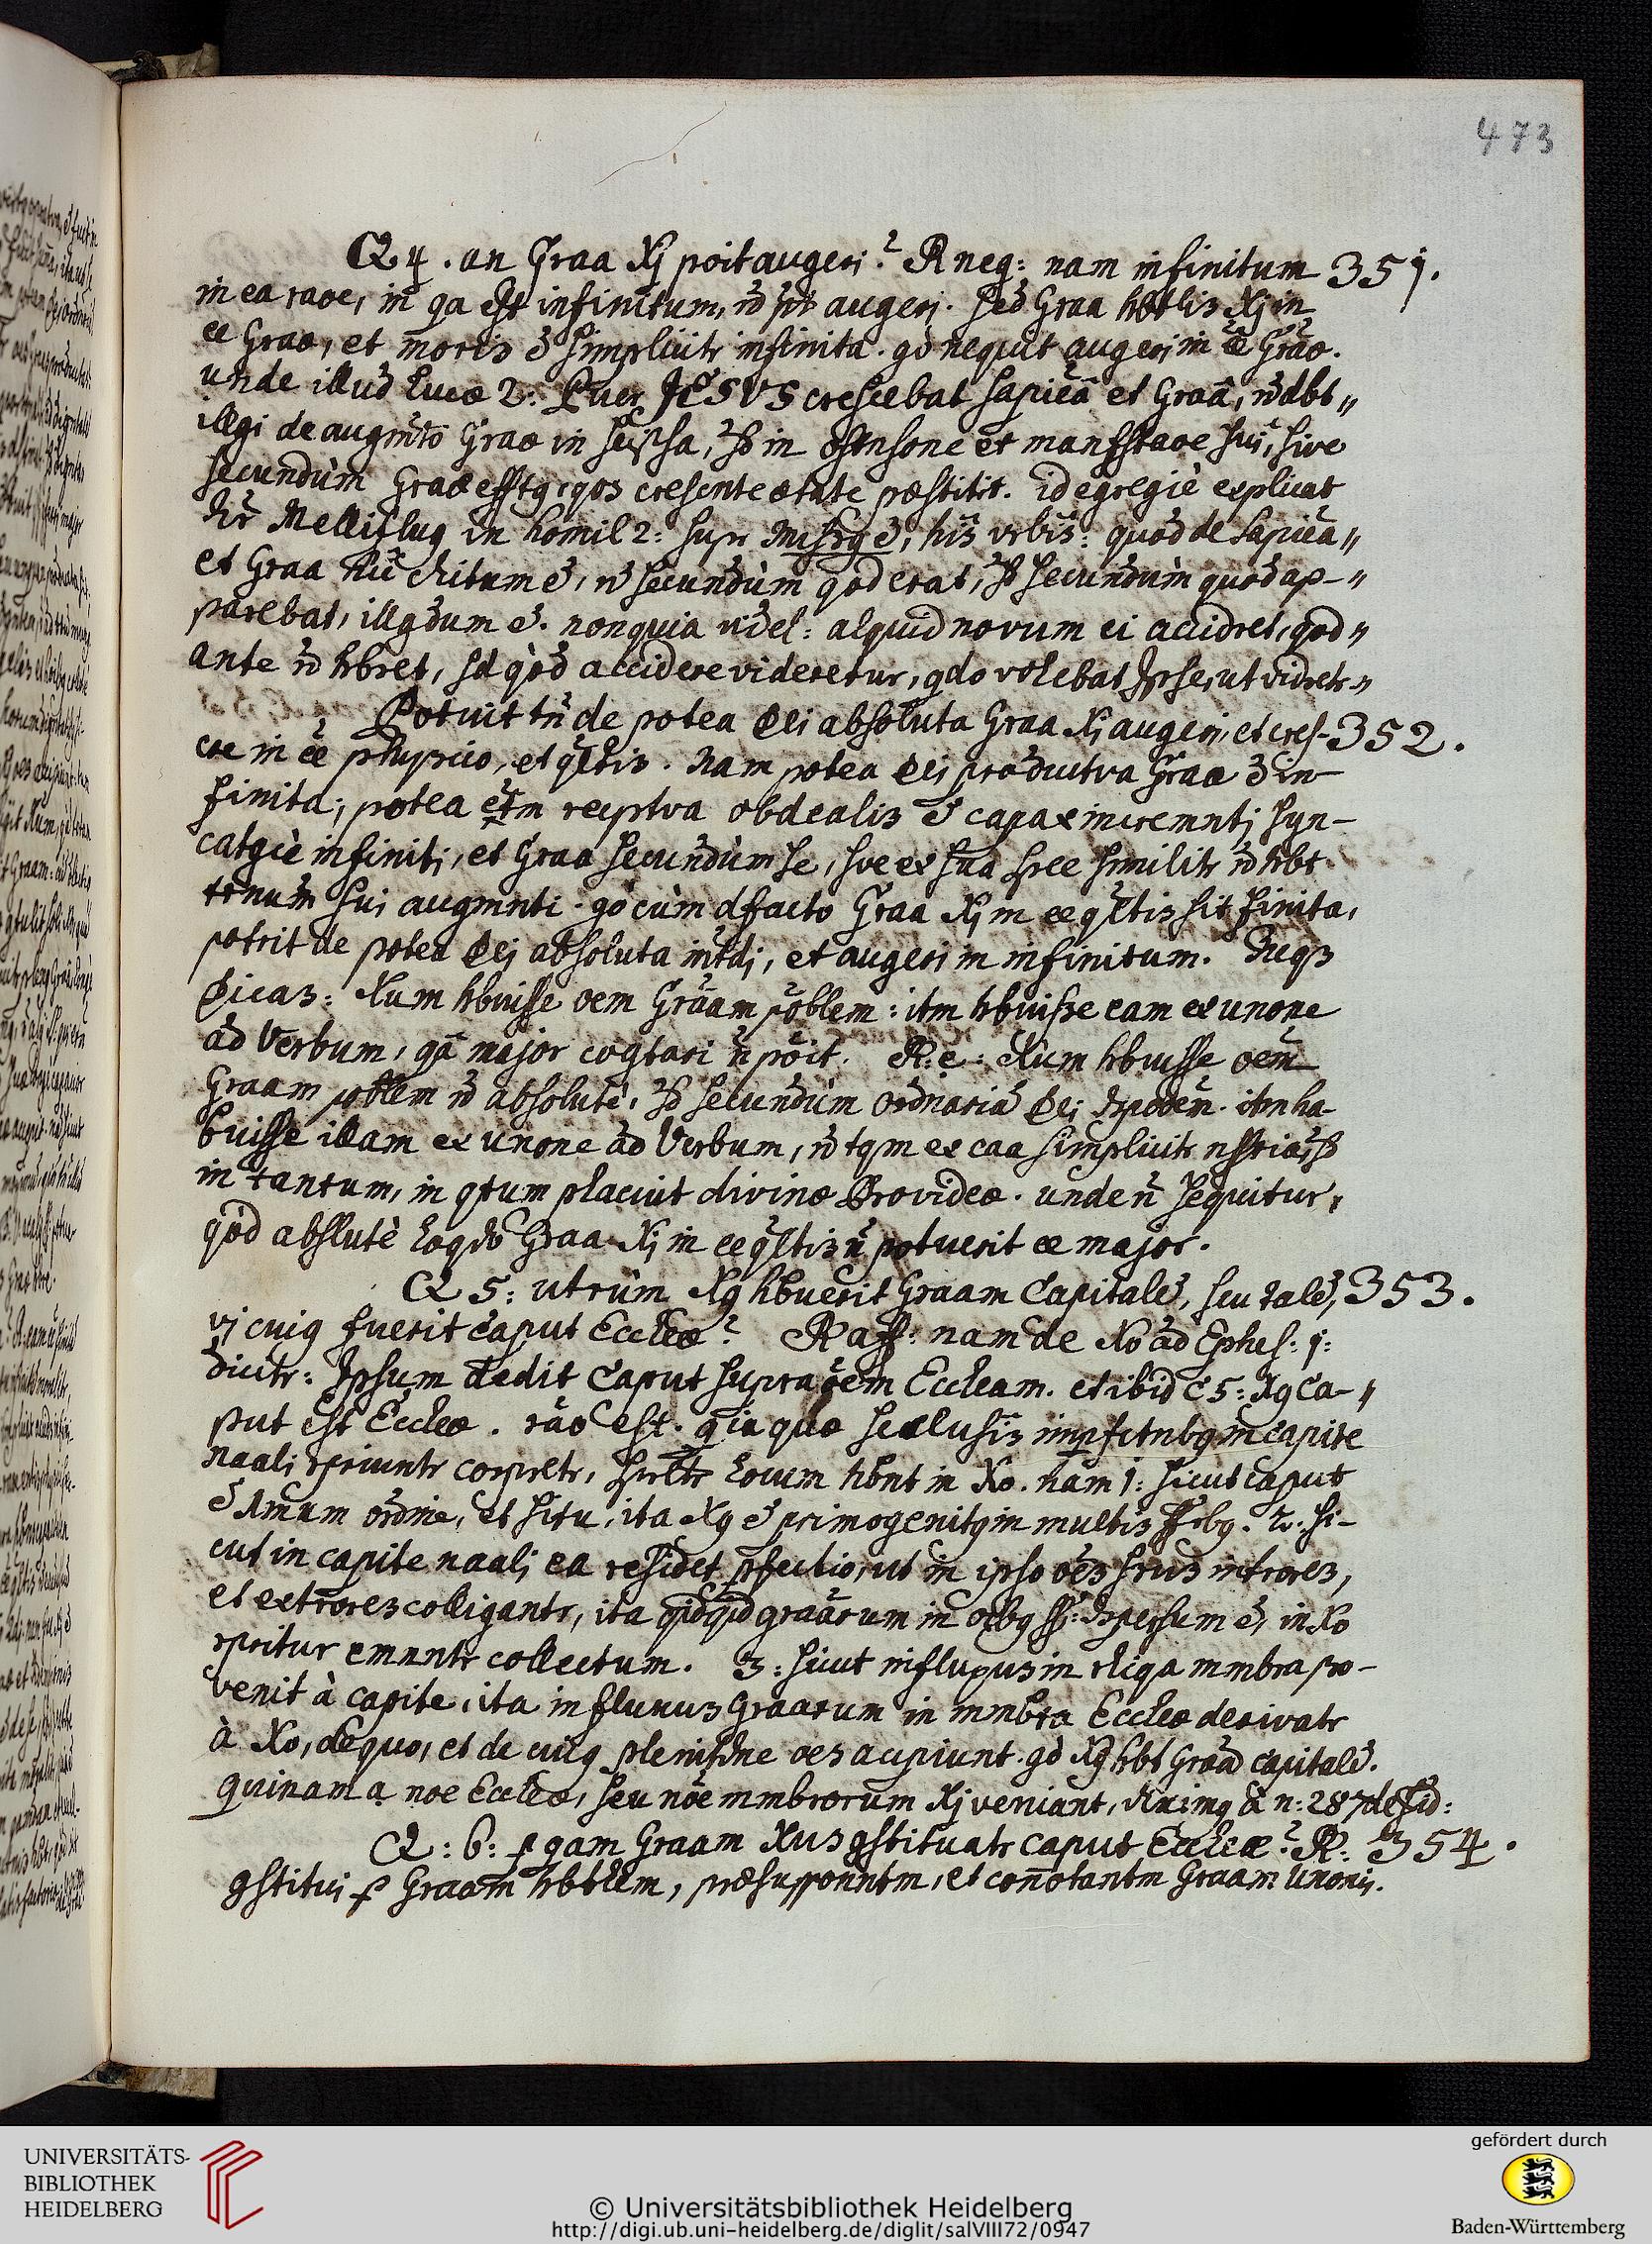 473
Q 4. an Graa Xj poit augeri? R neg: nam infinitum 351.
in ea raoe, in qa est infinitum, augeri. sed Graa hbtlis Xj in
ee Grae, et moris simplicitr infinita. go nequit augeri in ee Grae.
unde illud Lucæ 2: Puer JESUS crescebat sapieâ et Graâ, dbt„
illgi de augmto Grae in seipsa, in ostnsone et manfstaoe sui, sive
secundùm Grae qos cresente ætate præstitit. id egregiè explicat
Melliflug in homil 2: supr his vrbis: quod de sapieâ„
et Graa hic dictum é, secundùm qod erat, secundùm quod ap-„
parebat, illgdum é. non quia videl: alquid novum ei accidret, qod„
ante hbret, sd qòd accidere videretur, qdo volebat Ipse, ut vidretr„
Potuit tn de potea Dei absoluta Graa Xj augeri, et cres- 352.
cre in ee physico, et qltis. Nam potea Dei productva Grae é in-
finita; potea etm recptva obdealis é capax incremnti syn-
catgiè infiniti, et Graa secundùm se, sve ex sua spee similitr hbt
trnum sui augmnti. go cùm dfacto Graa Xj in ee qltis sit finita,
potrit de potea Dei absoluta intdi, et augeri in infinitum. Neqs
Dicas: Xum hbuisse oem Graam poblem: itm hbuisse eam ex unone
ad Verbum, qâ major cogtari n poit. R: e: Xum hbuisse oem
Graam poblem absolutè, secundùm ordnariâ Dei itm ha-
buisse illam ex unone ad Verbum, tqm ex caa simplicitr
in tantum, in qtum placuit divinæ Provideæ. unde n sequitur,
qòd abslutè loqdo Graa Xj in ee qltis n potuerit ee major.
Q 5: utrùm Xg hbuerit Graam Capitalé, seu talé, 353.
vi cuig fuerit caput Eccleæ? R aff: nam de Xo ad Ephes: 1:
dicitr: Ipsum dedit caput supra oem Eccleam. et ibid c 5: Xg Ca-„
put est Eccleæ. rao est. qia quæ seclusis impfctnbg in capite
naali rpriuntr corpretr, locum hbnt in Xo. nam 1: sicut caput
é 1mum ordine, et situ, ita Xg é primogenitg in multis frbg. 2: si-
cut in capite naali ea residet pfectio, ut in ipso oes snsus introres,
et extrores colligantr, ita qidqid graarum in oibg é, in Xo
rpritur emnntr collectum. 3: sicut influxus in rliqa mmbra po-
venit à capite, ita influxus Graarum in mmbra Eccleæ derivatr
à Xo, de quo, et de cuig plenitdne oes accipiunt. go Xg hbt Graâ capitalé.
quinam a noe Eccleæ, seu noe mmbrorum Xj veniant, dximg à n: 287 de Fid:
Q: 6: p qam Graam Xus cstituatr caput Eccleæ? R: 354.
cstitui p Graam hbtlem, præsupponntm, et connotantm Graam Unonis.
UNIVERSITÄTS-
BIBLIOTHEK
HEIDELBERG
© Universitätsbibliothek Heidelberg
http://digi.ub.uni-heidelberg.de/diglit/salVIII72/0947
gefördert durch
Baden-Württemberg